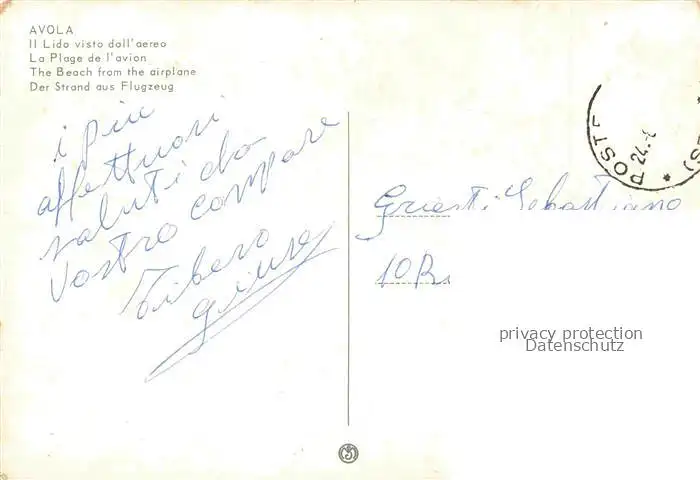 AVOLA
Il Lido visto dall'aereo
La Plage de l'avion
The Beach from the airplane
Der Strand aus Flugzeug
i piu
affettuosi
saluti da
vostro compare
Tibero
giuse
Sebastiano
10R
POSTE
24.
privacy protection
Datenschutz